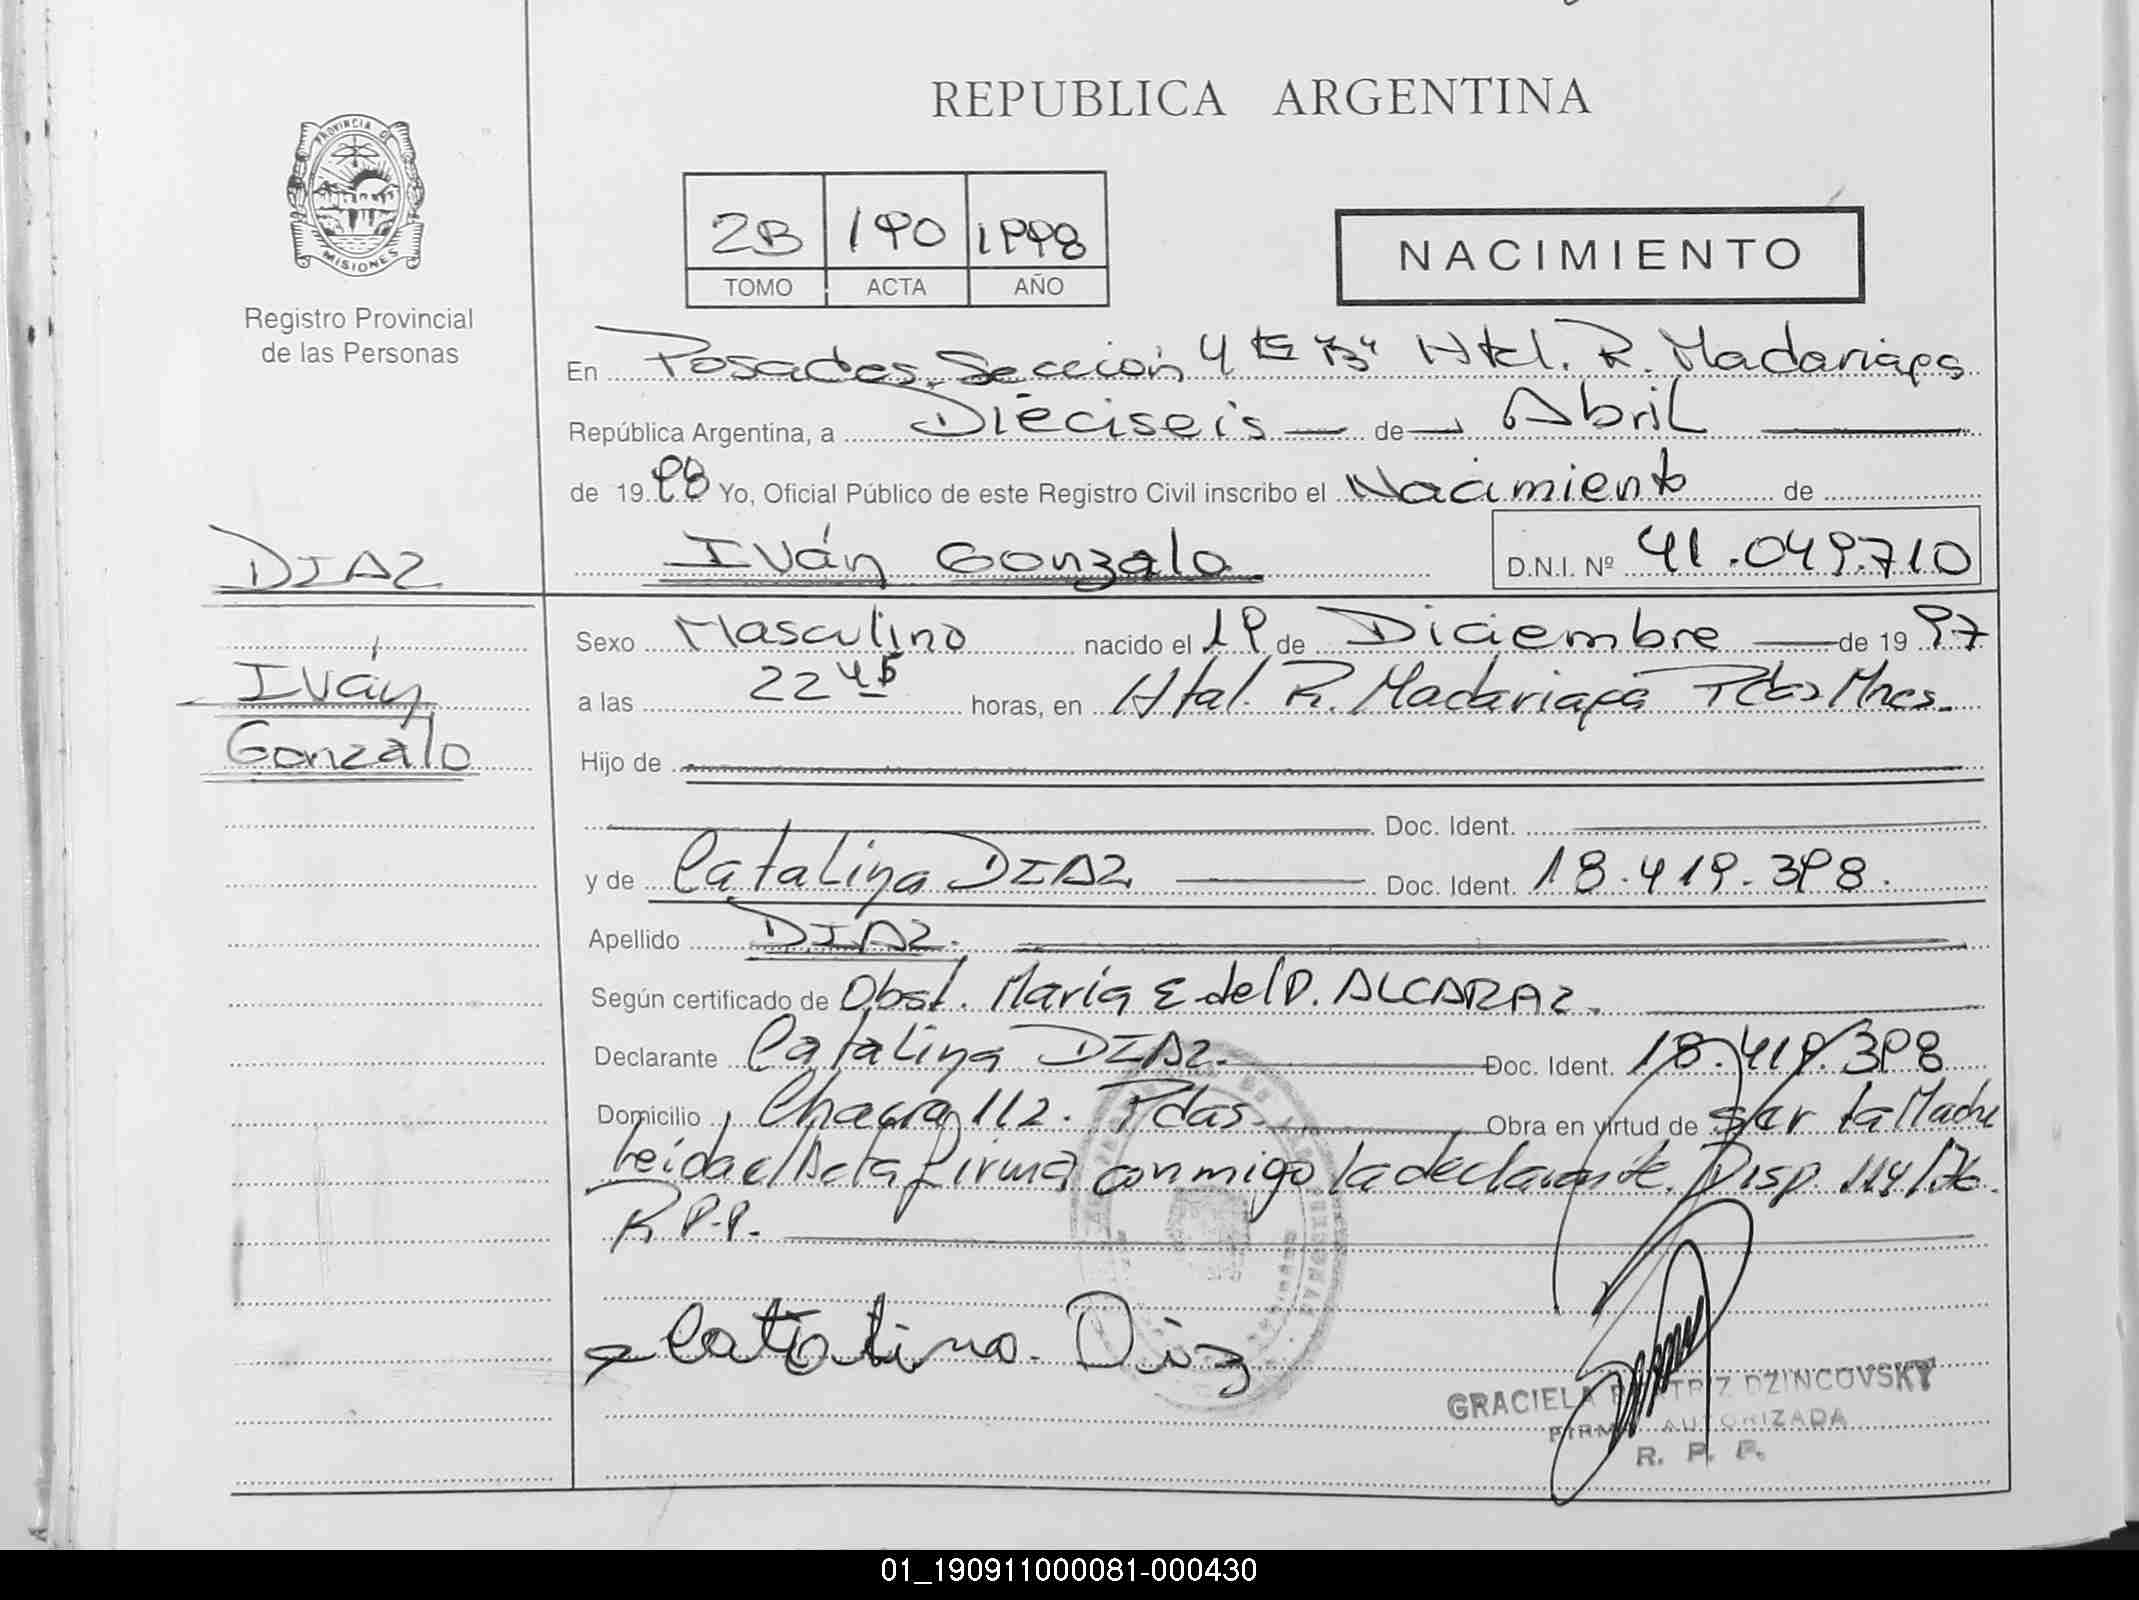 REPUBLICA ARGENTINA
PROVINCIA DE
MISIONES
Registro Provincial
de las Personas
2B 190 1998
TOMO ACTA AÑO
NACIMIENTO
En Posadas, Sección 4ta "B" Htal. R. Madariaga
República Argentina, a Dieciseis de Abril
de 1998 Yo, Oficial Público de este Registro Civil inscribo el Nacimiento de
Iván Gonzalo D.N.I. Nº 41.049.710
DIAZ
Iván
Gonzalo
Sexo Masculino nacido el 19 de Diciembre de 1997
a las 22 45 horas, en Htal. R. Madariaga Pdas Mnes.
Hijo de
Doc. Ident.
y de Catalina DIAZ Doc. Ident. 18.419.398.
Apellido DIAZ.
Según certificado de Obst. María E. del P. ALCARAZ.
Declarante Catalina DIAZ. Doc. Ident. 18.419.398
Domicilio Chacra 112. Pdas. Obra en virtud de ser la Madre
Leida el Acta firma conmigo la declarante. Disp. 114/76.
R.P.P.
Catalina Diaz
GRACIELA BEATRIZ DZINCOVSKY
FIRMA AUTORIZADA
R. P. P.
01_190911000081-000430